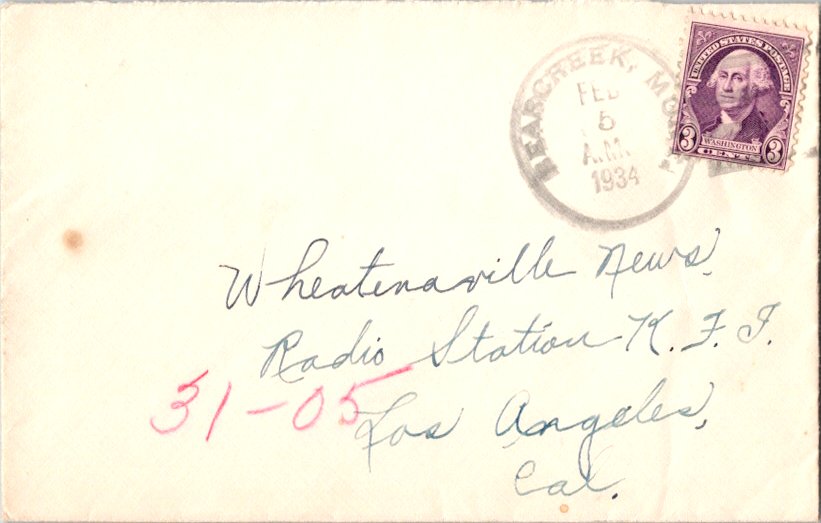 BEARCREEK, MONT.
FEB
5
A.M.
1934
UNITED STATES POSTAGE
3 WASHINGTON 3
CENTS
Wheatenaville News,
Radio Station K. F. I.
31-05
Los Angeles,
Cal.